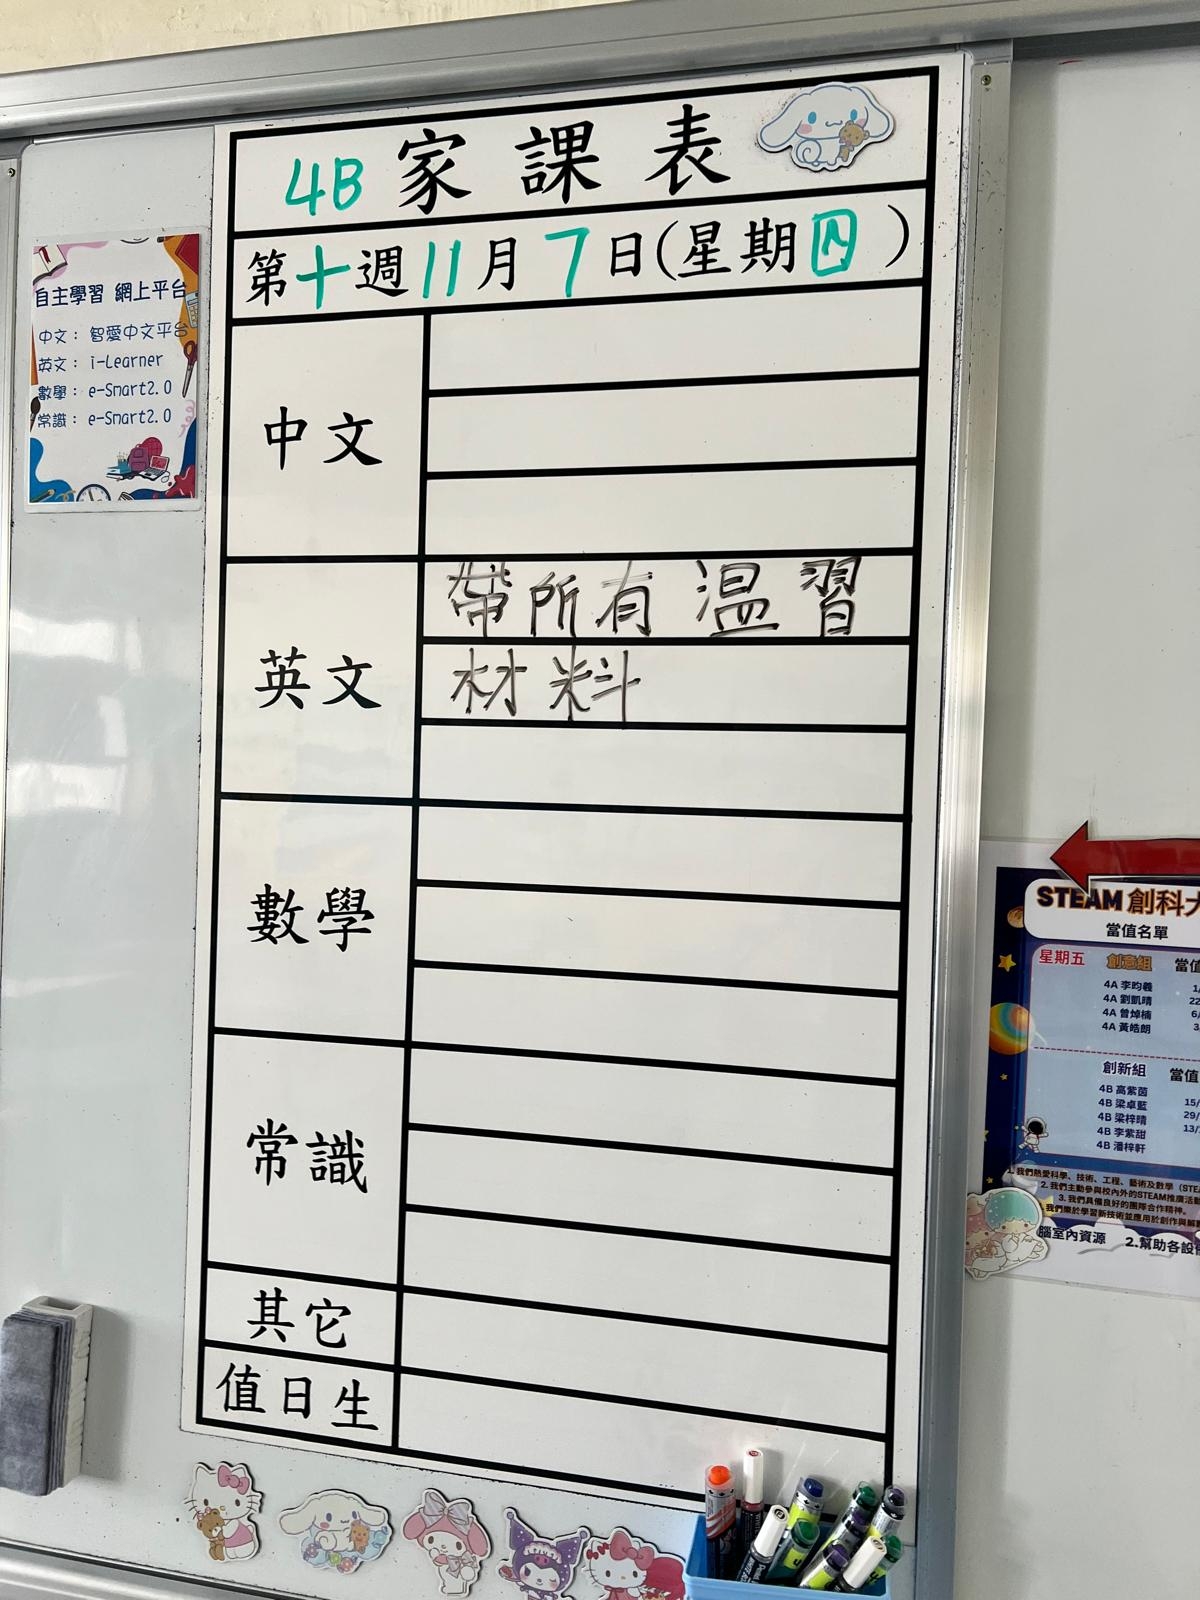 4B 家課表
第十週11月7日(星期四)
中文
英文
帶所有溫習
材料
數學
常識
其它
值日生
自主學習 網上平台
中文： 智愛中文平台
英文： i-Learner
數學： e-Smart2.0
常識： e-Smart2.0
STEAM 創科大
當值名單
星期五 創意組 當值
4A 李昀羲
4A 劉凱晴
4A 曾焯楠
4A 黃皓朗
創新組 當值
4B 高紫茵
4B 梁卓藍
4B 梁梓晴
4B 李紫甜
4B 潘梓軒
1. 我們熱愛科學、技術、工程、藝術及數學
2. 我們主動參與校內外的STEAM推廣活動
3. 我們具備良好的團隊合作精神。
我們樂於學習新技術並應用於創作與解
腦室內資源 2.幫助各設